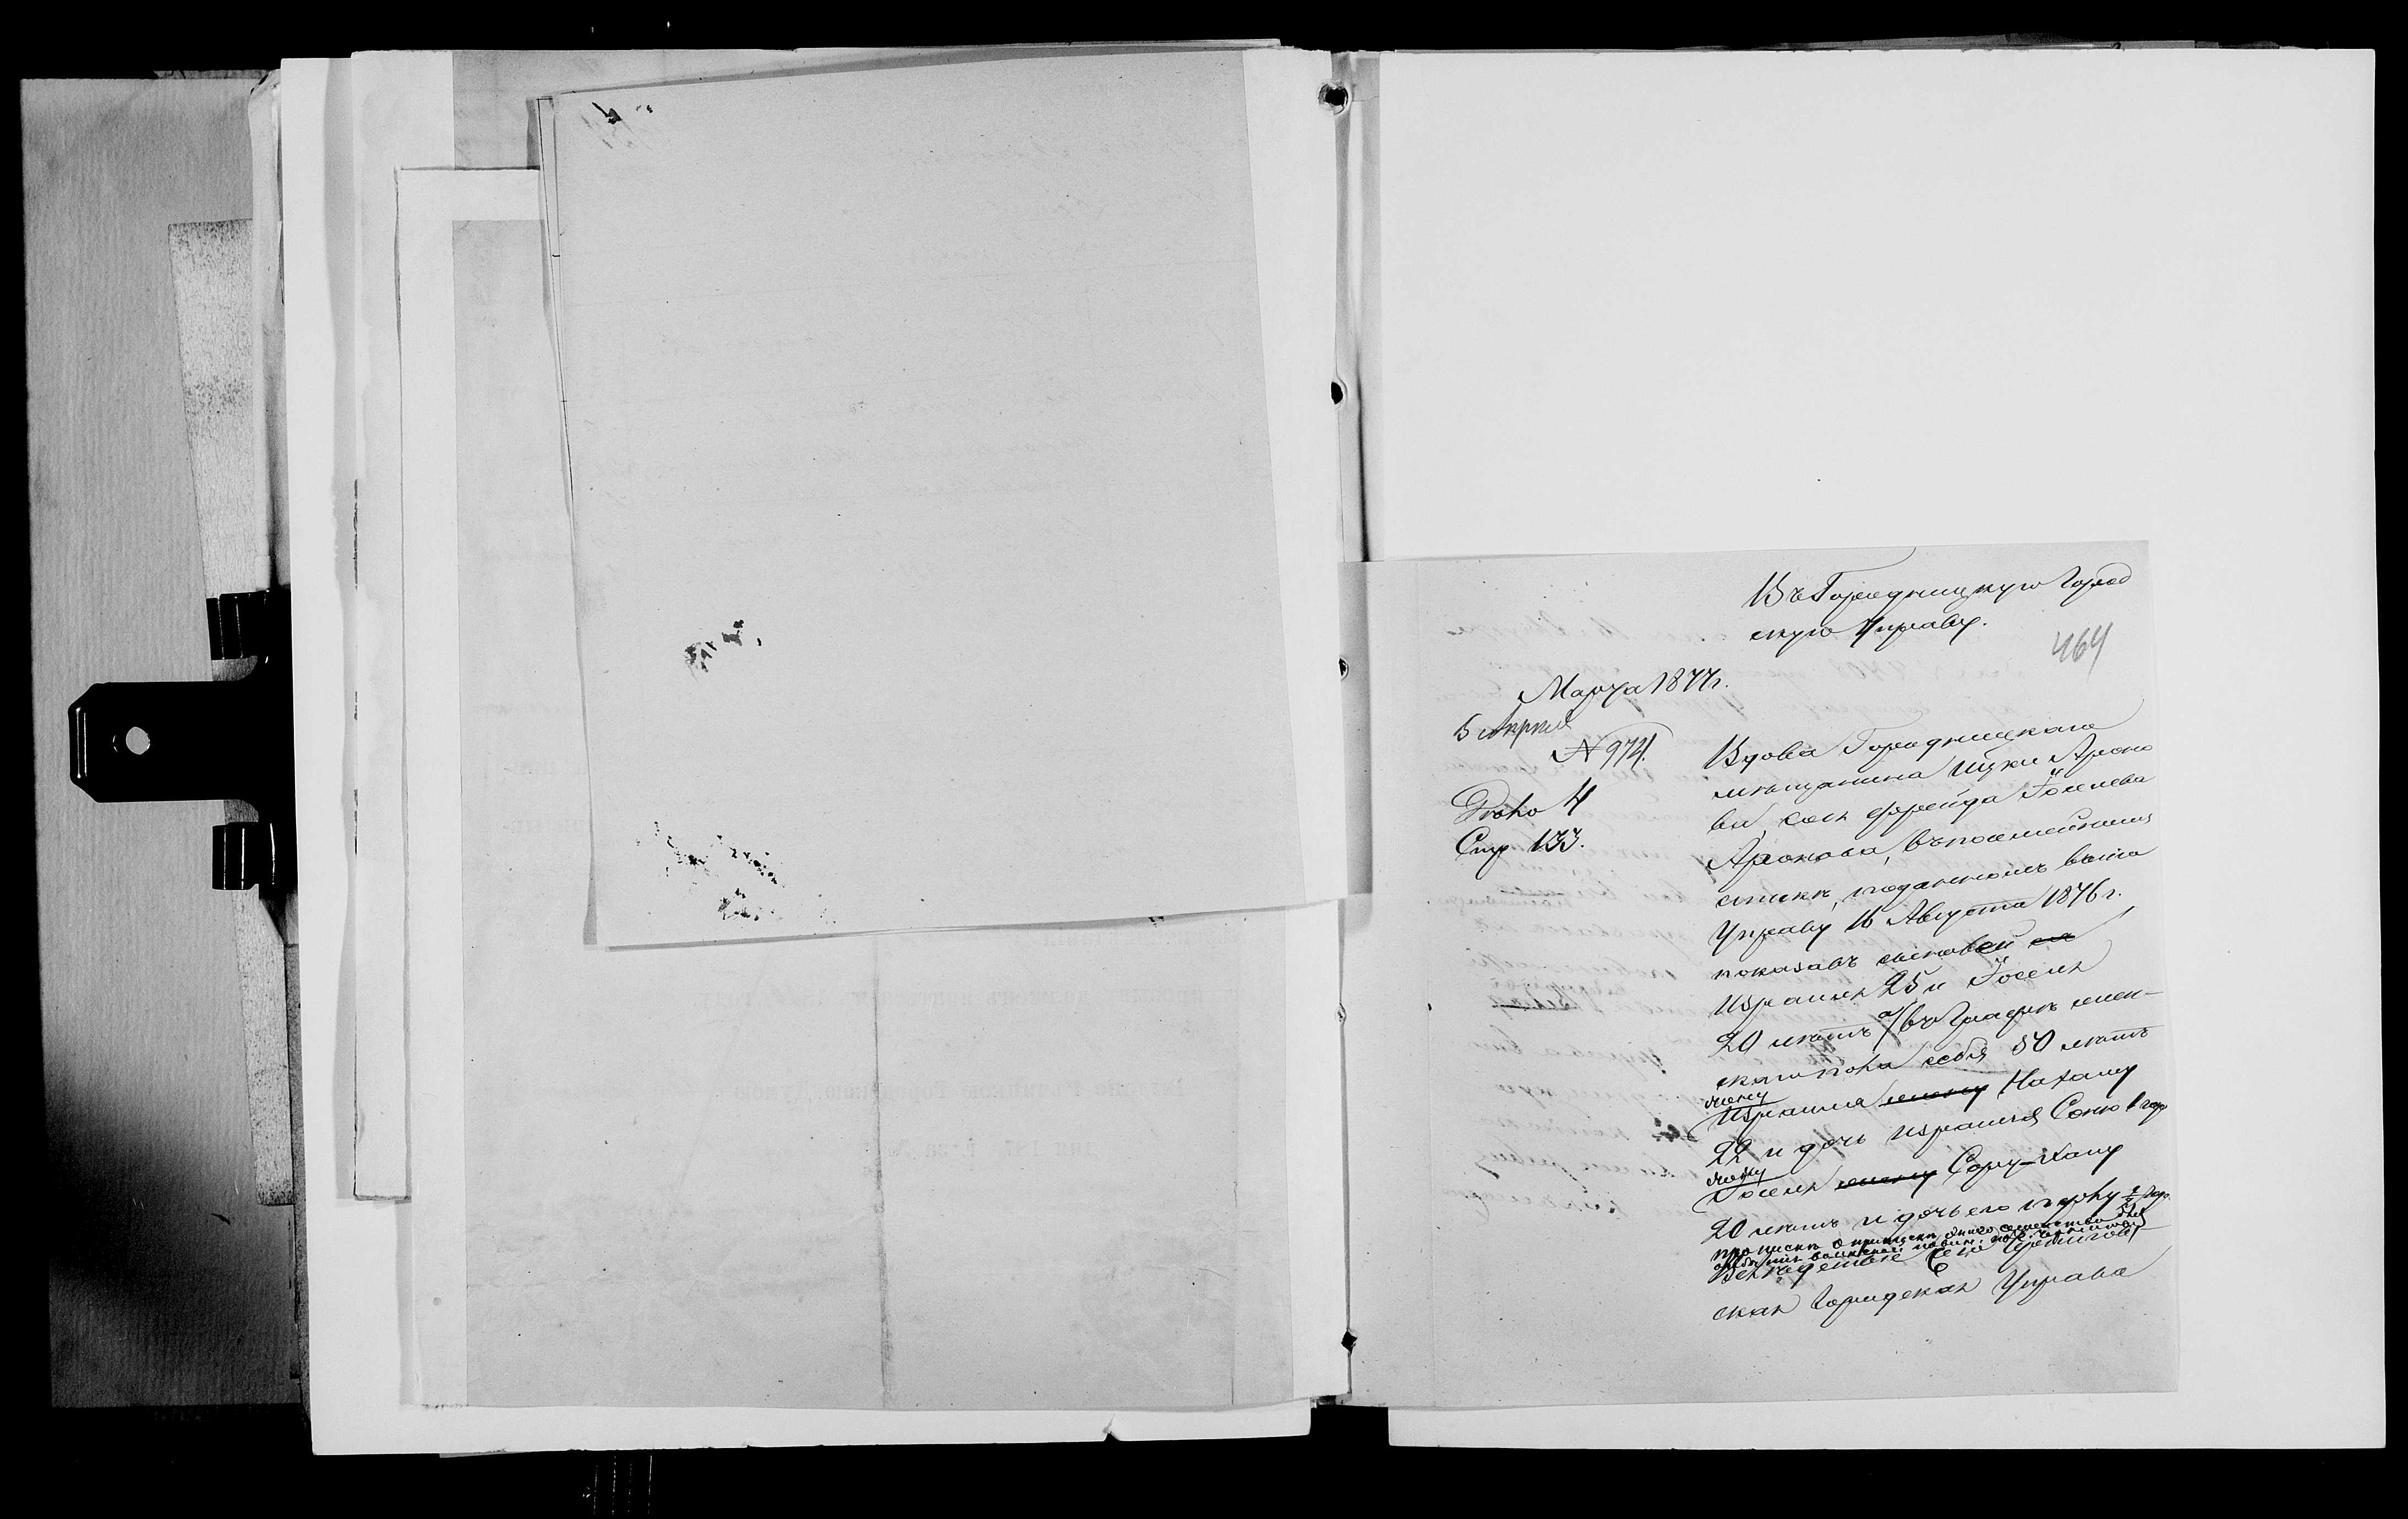 Въ Городницкую Город
скую Управу.
464
Марта 1877 г.
5 Апреля
№ 974.
Дѣло 4
Стр 133.
Вдова Городницкаго
мѣщанина Ицки Ароно
ва, Фрейда Іоселева
Аронова, въ посемейномъ
спискѣ, поданномъ въ
Управу 16 Августа 1876 г.
показавъ сыновей
Израиля 25 и Іоселя
20 лѣтъ а въ Графѣ жен-
скаго пола себя 50 лѣтъ
жену
Израиля жену Нахаму
22 и дочь Израиля Соню 1 годъ
жену
Іоселя жену Сору-Хану
20 лѣтъ и дочь его
Вслѣдствіе сего Чернигов
ская Городская Управа